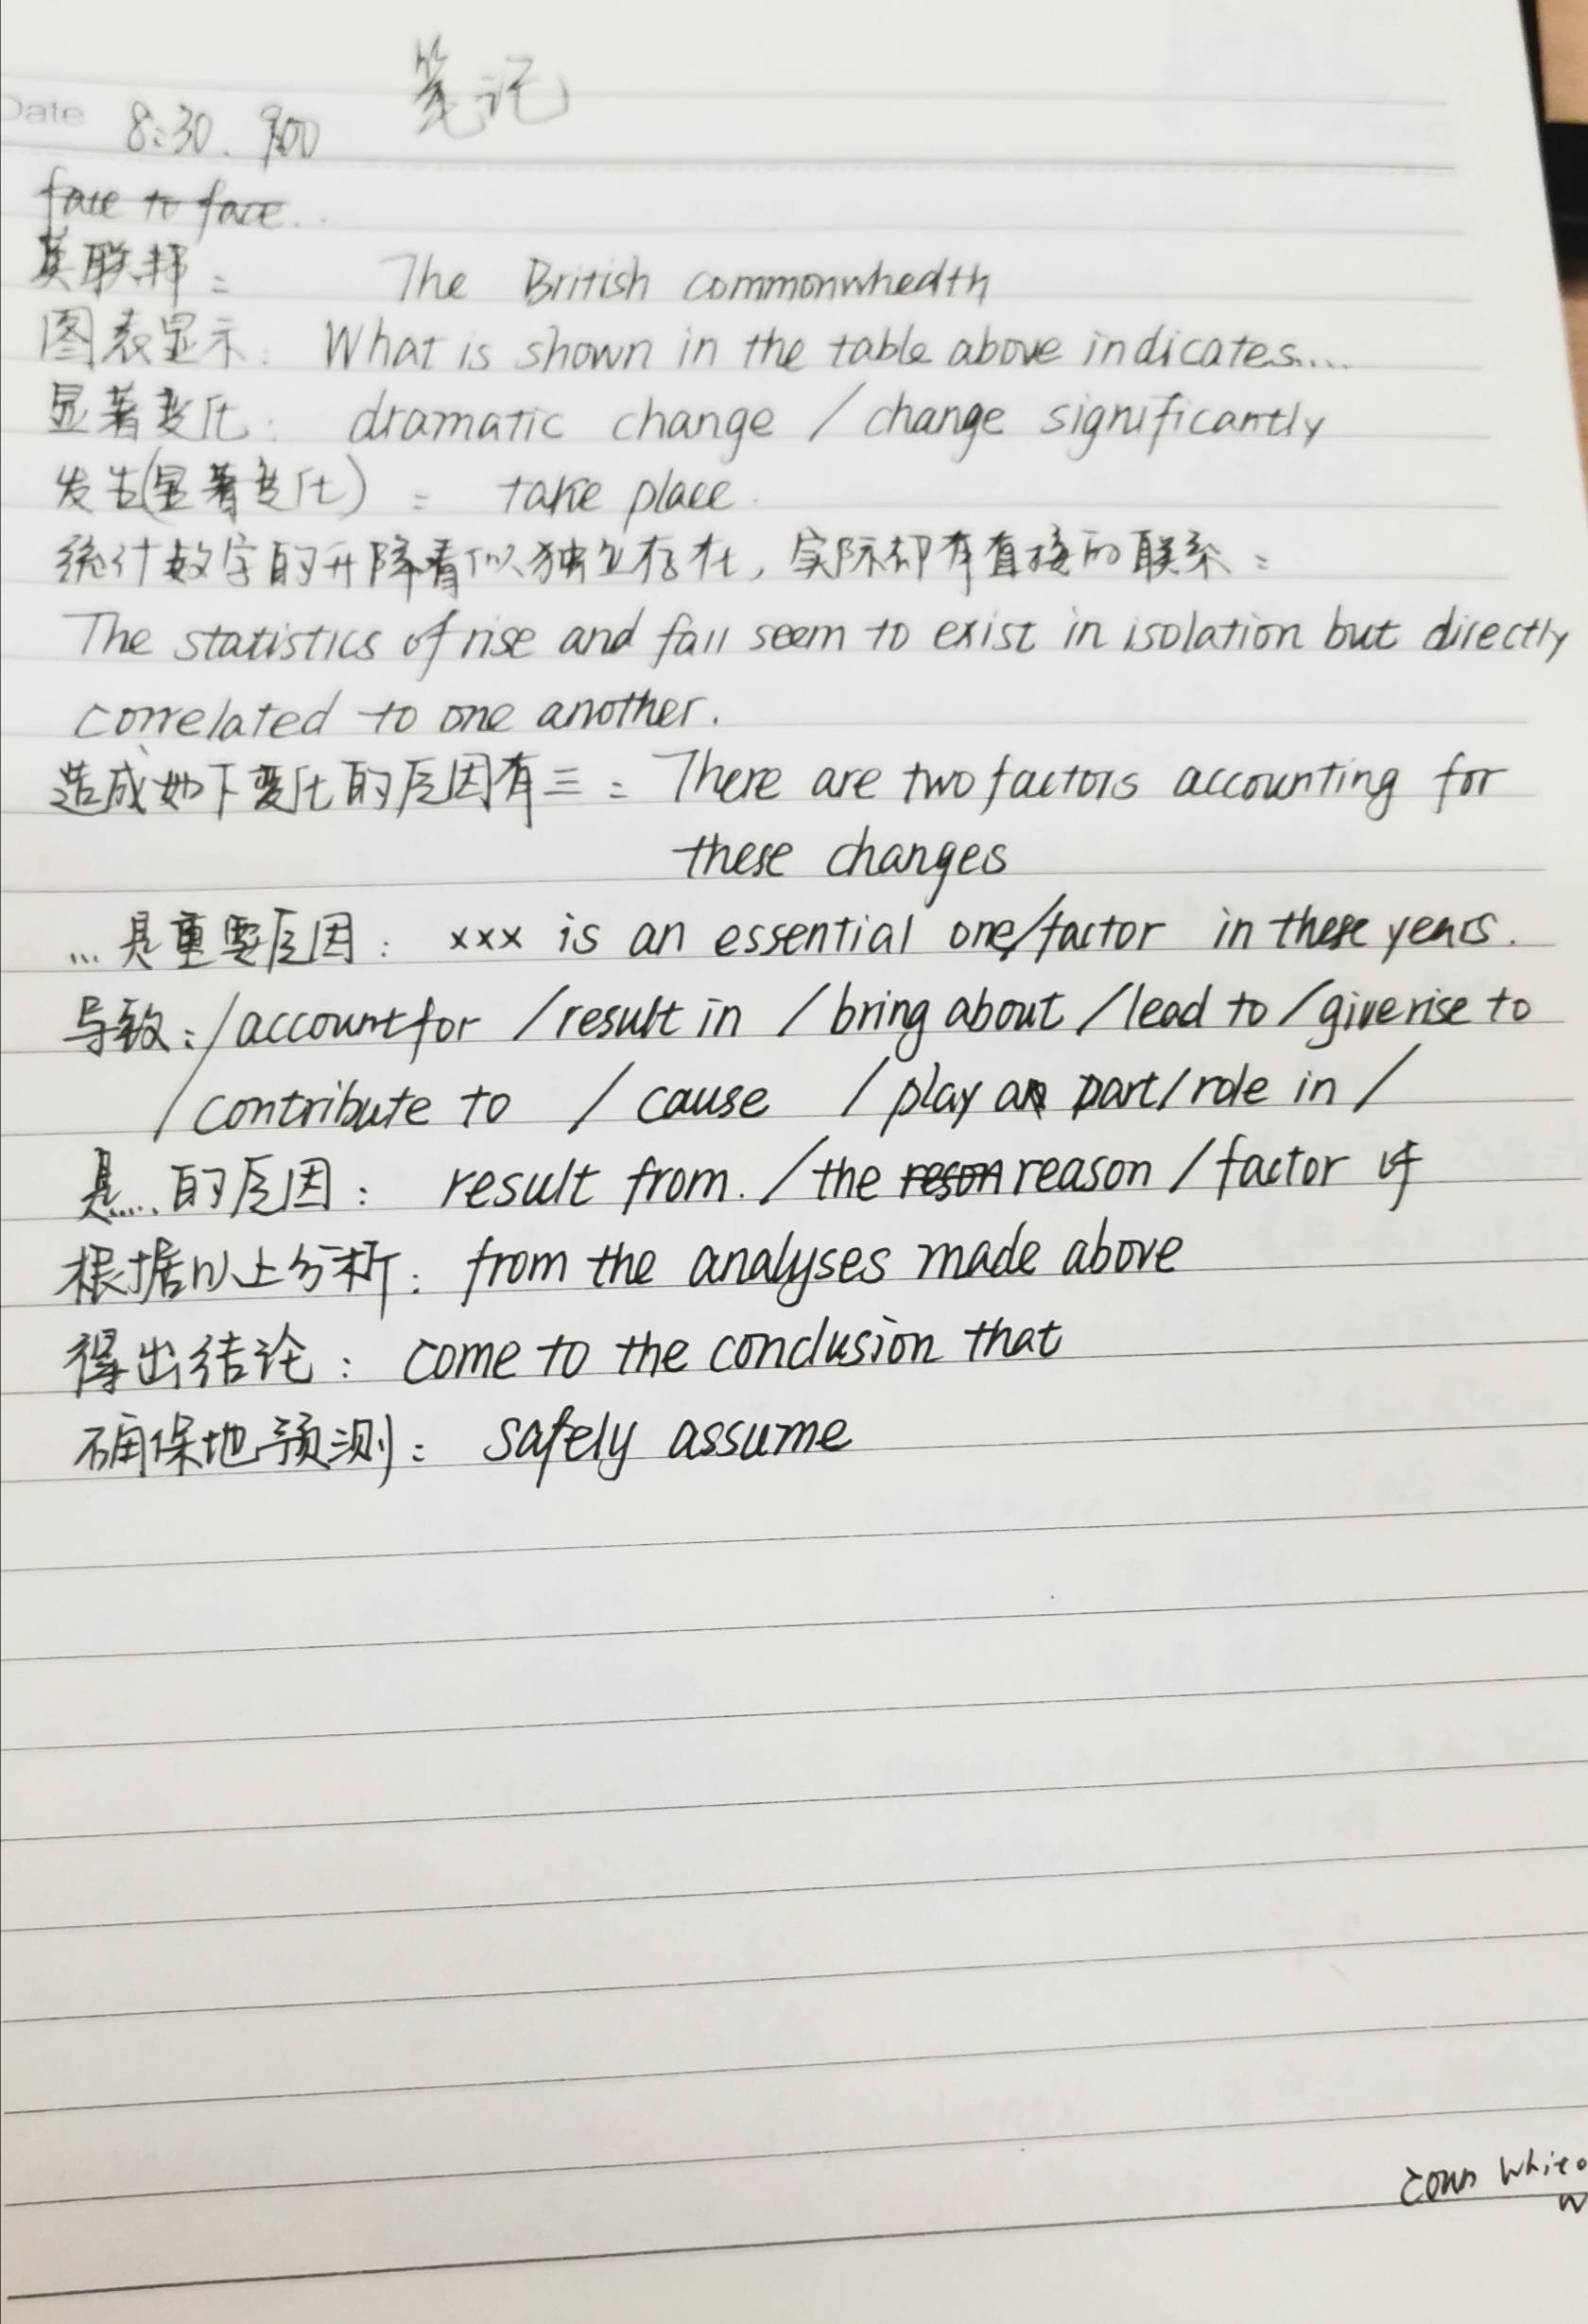 笔记
Date 8:30. 900
face to face..
英联邦: The British commonwhedth
图表显示: What is shown in the table above indicates....
显著变化: dramatic change / change significantly
发生(显著变化): take place.
统计数字的升降看似独立存在, 实际却有直接的联系:
The statistics of rise and fall seem to exist in isolation but directly
correlated to one another.
造成如下变化的原因有三: There are two factors accounting for
these changes
... 是重要原因: xxx is an essential one/factor in these years.
导致: /account for /result in /bring about /lead to /give rise to
/contribute to / cause / play a part/role in /
是.... 的原因: result from. /the reson reason /factor of
根据以上分析: from the analyses made above
得出结论: come to the conclusion that
确保地预测: safely assume